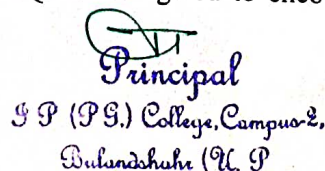 Principal
I P (P G.) College, Campus-2,
Bulandshahr (U. P